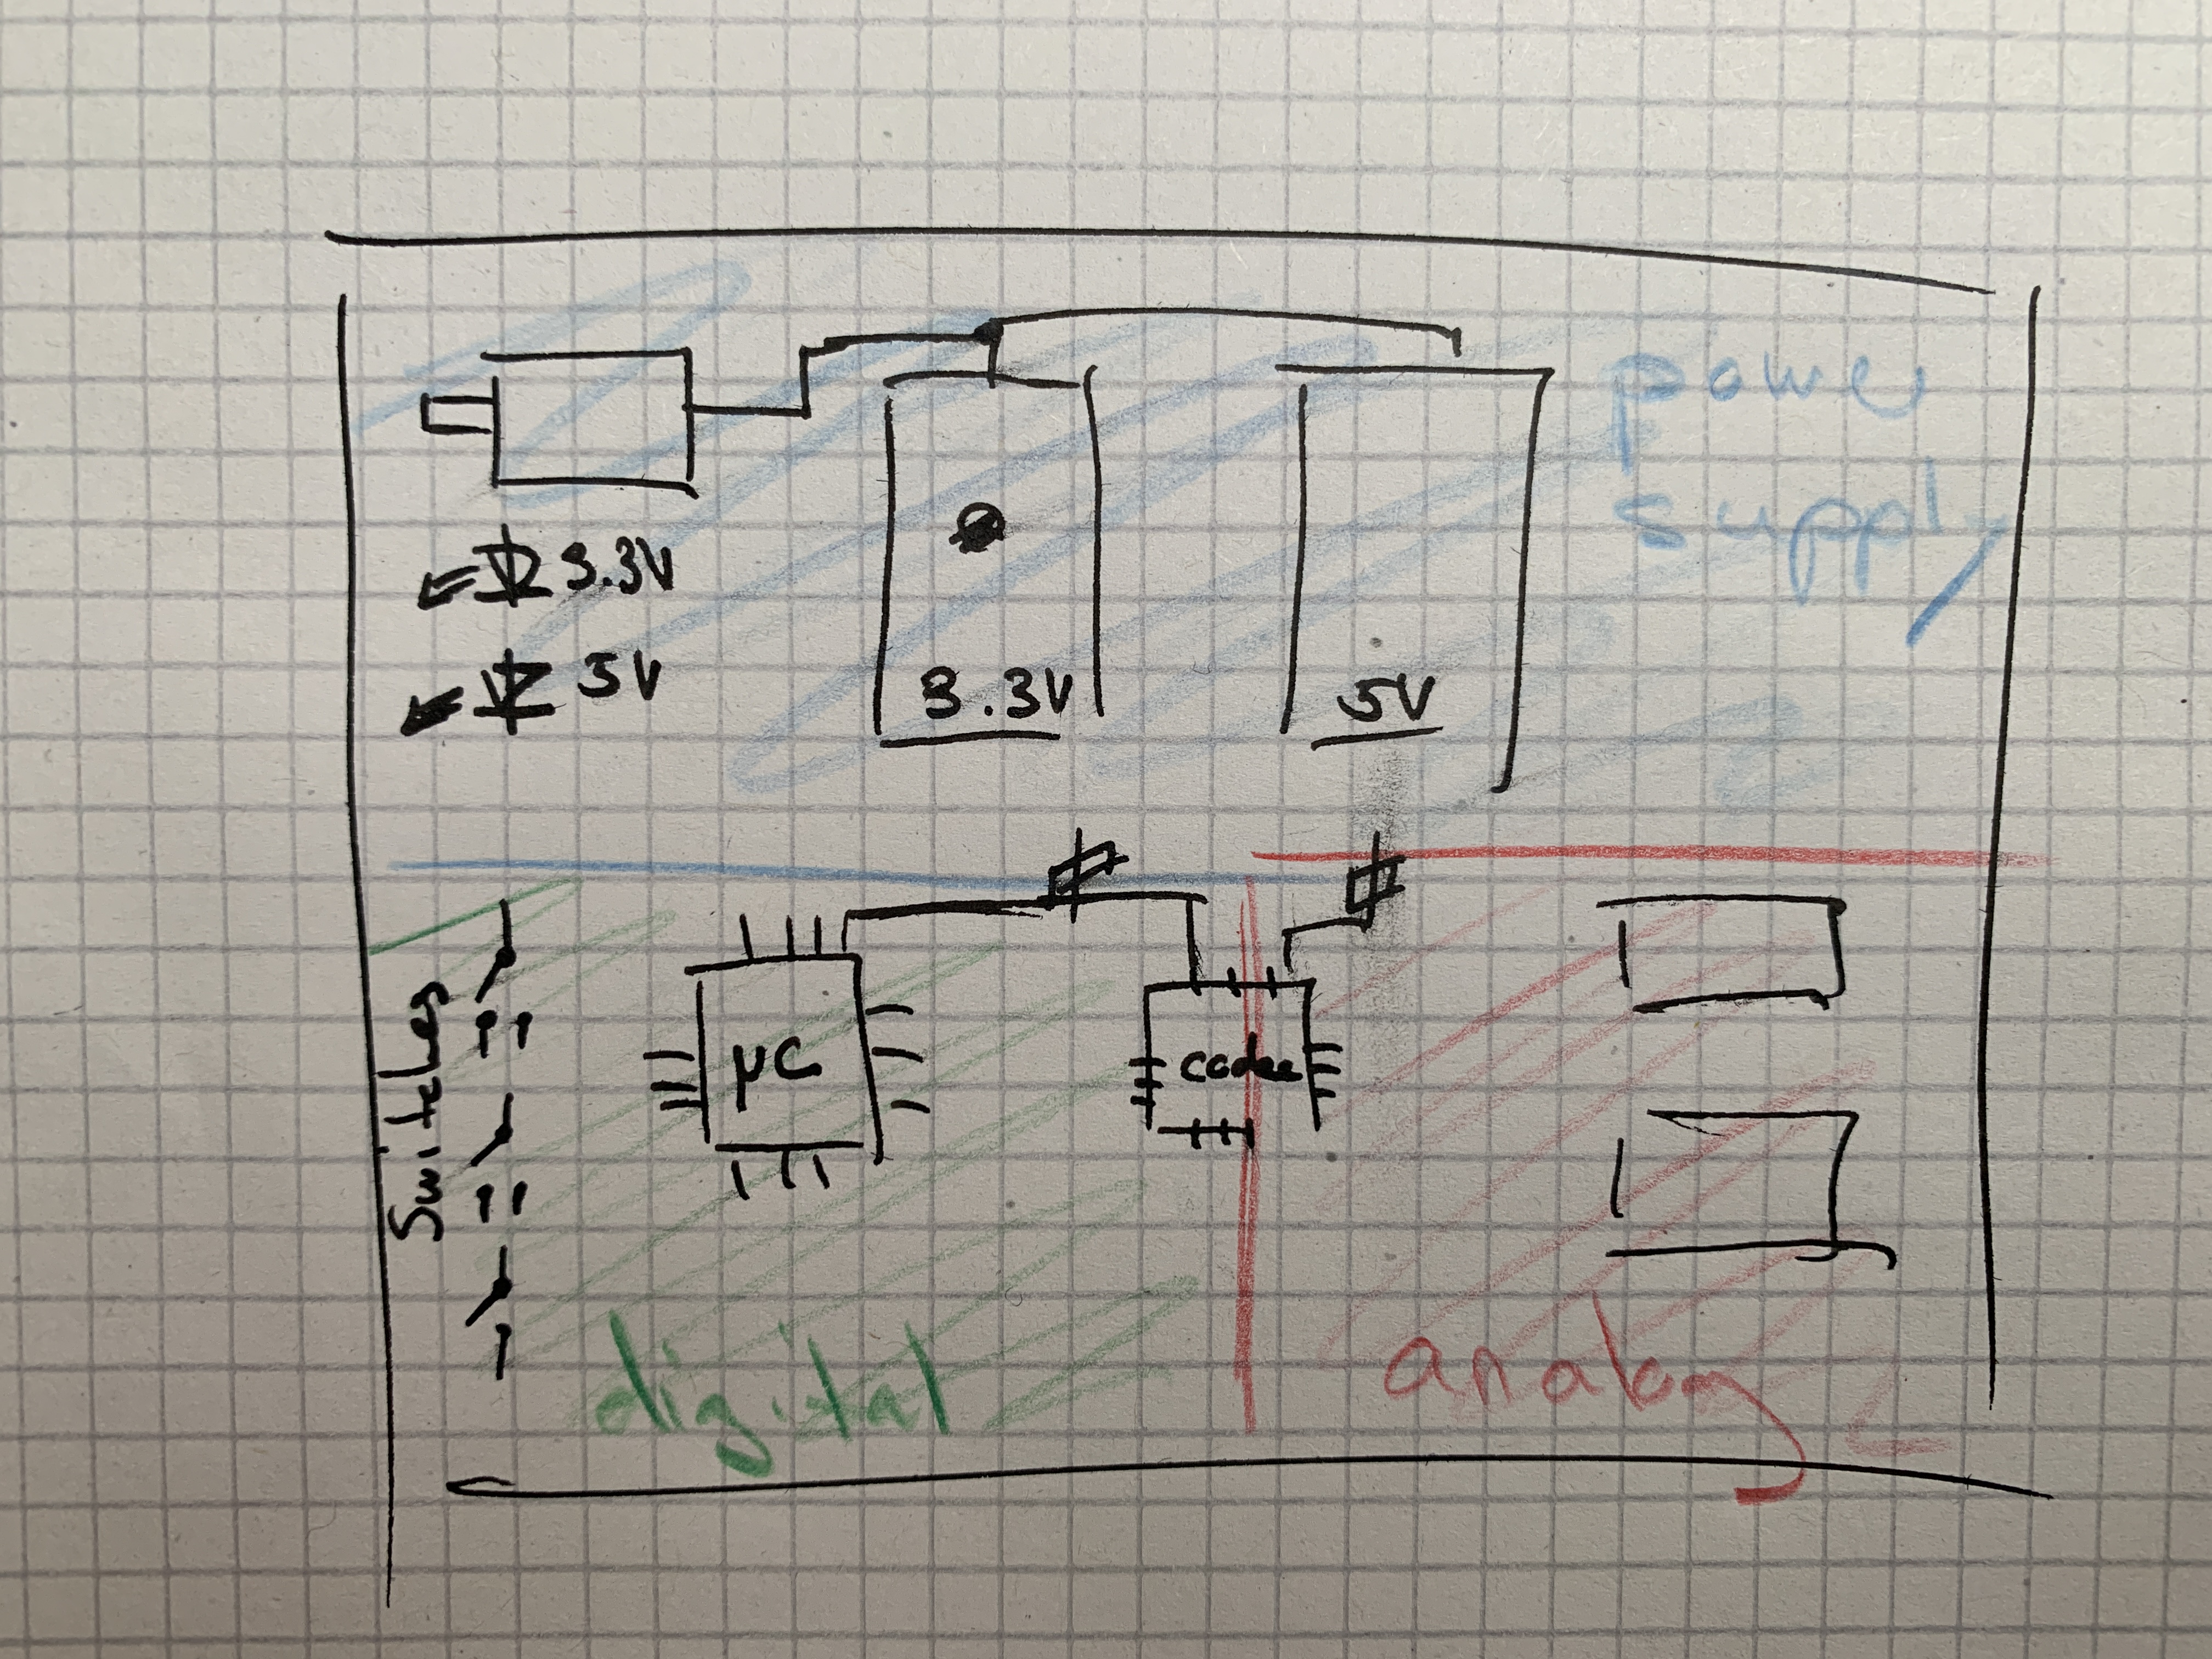 power
supply
3.3V
5V
3.3V
5V
Switches
µC
codec
digital
analog